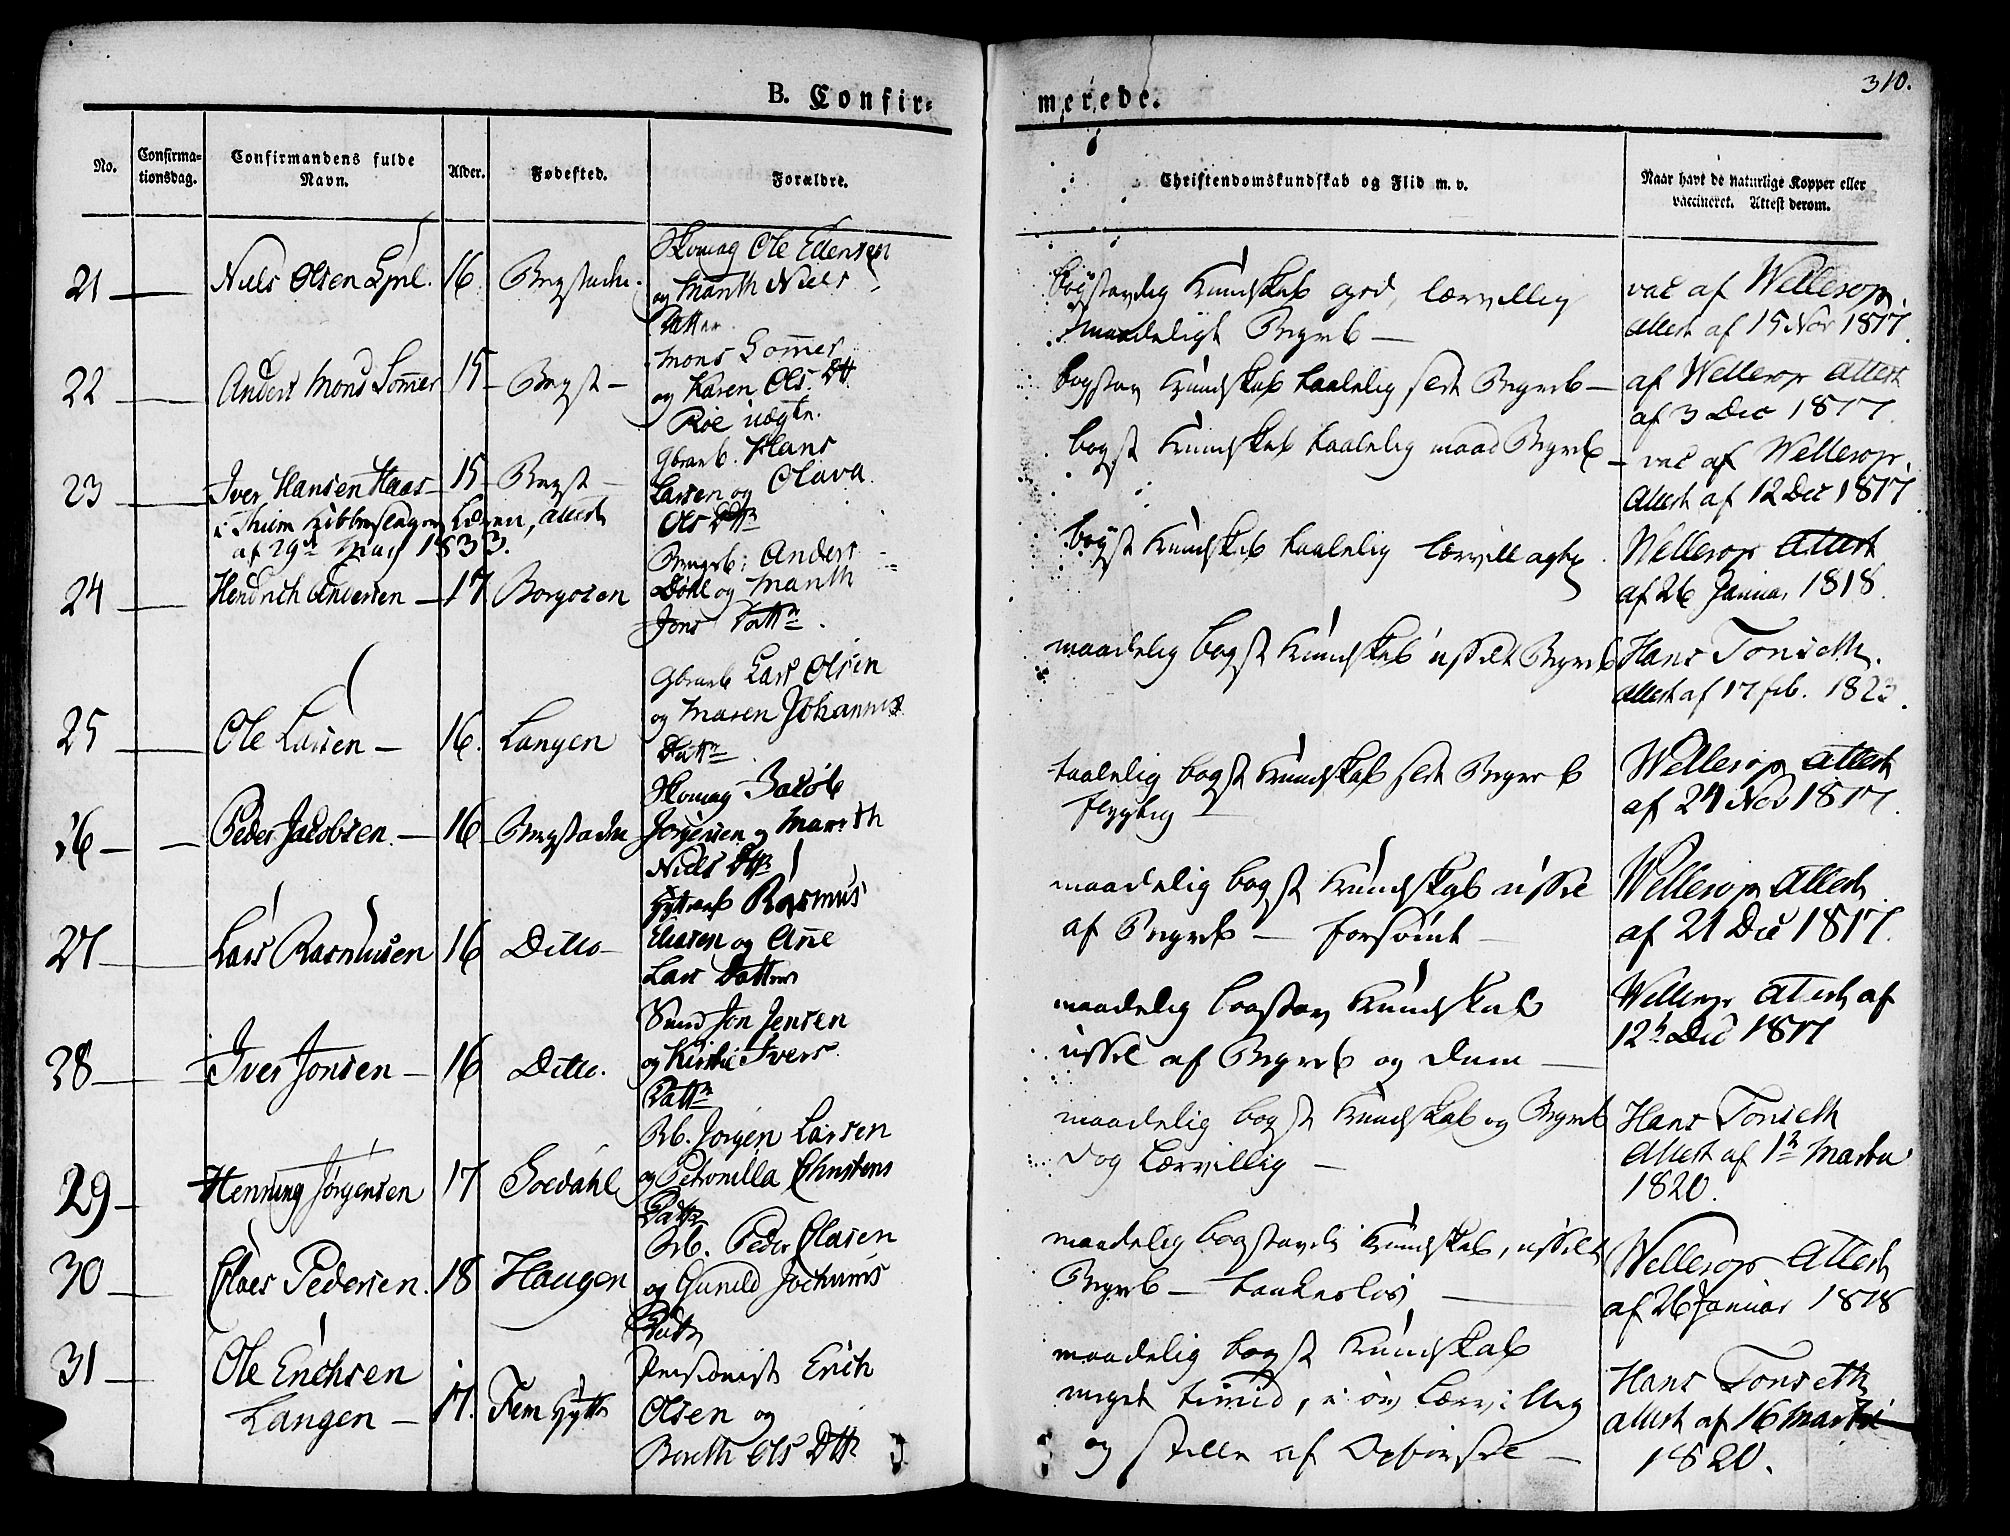 310.
B. Confir- merede.
No.
Confirma-
tionsdag.
Confirmandens fulde
Navn.
Alder.
Fødested.
Forældre.
Christendomskundskab og Flid m. v.
Naar havt de naturlige Kopper eller
vaccineret. Attest derom.
21 Niels Olsen 16. Bergstaden.
Skomag Ole Edersen
og Marith Niels
Datter.
bogstavlig Kundskab god, lærvillig
maadeligt Begreb —
vac af Wellerop
Attest af 15 Nov 1817.
22 Anders Mons Sommer 15 — Bergst —
Mons Sommer
og Karen Ols Dtt
Røe uægte.
bogstav Kundskab taalelig slet Begreb —
af Wellerop Attest
af 3 Dec 1817.
23 Iver Hansen Haas — 15 — Bergst —
i Thiem Kobberslager Læren, Attest
af 29de May 1833.
Gbrarb. Hans
Larsen og Olava
Ols Dttr
bogst Kundskab taalelig maad Begreb
— vac af Wellerop.
Attest af 12 Dec 1817
24 Hendrich Andersen — 17 Borgosen
Bergarb: Anders
Døhl og Marith
Jons Dattr.
bogst Kundskab taalelig lærvill agtp
Wellerop Attest
af 26 Januar 1818.
25 Ole Larsen — 16. Langen
Gbrarb Lars Olsen
og Maren Johannes
Dattr
maadelig bogst Kundskab usselt Begreb
Hans Tonseth.
Attest af 17 feb. 1823.
26 — Peder Jacobsen. — 16 — Bergstaden
Skomag Jacob
Jorgensen og Marith
Niels Dttr
taalelig bogst Kundskab slet Begreb
flygtig —
Wellerop Attest
af 24 Nov 1817.
27 Lars Rasmusen 16 Ditto —
Hyttearb Rasmus
Eliasen og Anne
Lars Datter
maadelig bogst Kundskab ussel
af Begreb — forsømt —
Wellerop Attest
af 21 Dec 1817.
28 — Iver Jonsen — 16 Ditto.
Smed Jon Jensen
og Kirstie Ivers
Dattr
maadelig bogstav Kundskab
ussel af Begreb og dum —
Wellerop Attest af
12te Dec 1817
29 — Henning Jørgensen 17 Soedahl
Arb. Jorgen Larsen
og Petronilla Christens
Dattr
maadelig bogst Kundskab og Begreb
dog lærvillig —
Hans Tonseth
Attest af 1te Martii
1820.
30 Claes Pedersen. 18 Haugen
Arb. Peder Clasen
og Gunild Jochums
Dattr
maadelig bogstavli Kundskab, usselt
Begreb — tankeløs —
Wellerop Attest
af 26 Januar 1818
31 Ole Erichsen
Langen — 17. Fem Hytte
Pensionist Erich
Olsen og
Berith Ols Dttr
maadelig bogst Kundskab
meget timid, i øv lærvillig
og stille af Opførsel —
Hans Tonseth
Attest af 16 Martii
1820.